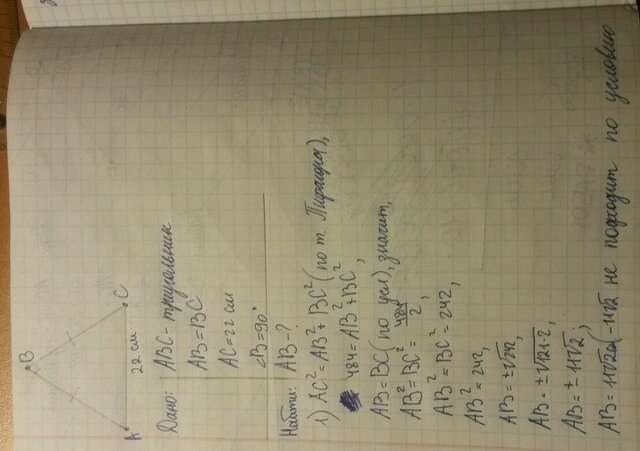 B
A
C
22 см
Дано: ABC - треугольник
AB=BC
AC=22 см
∠B=90°
Найти: AB-?
1) AC²=AB²+BC² (по т. Пифагора),
484=AB²+BC²,
AB=BC (по усл), значит,
AB²=BC²=484/2,
AB²=BC²=242,
AB²=242,
AB=±√242,
AB=±√121·2,
AB=±11√2;
AB=11√2см -11√2 не подходит по условию